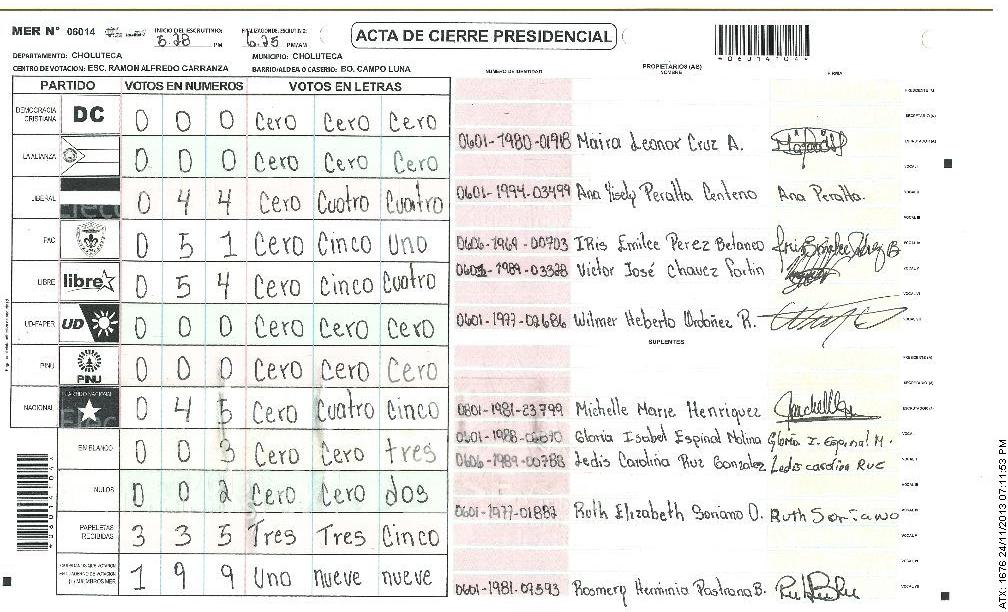 MER N° 06014 INICIO DEL ESCRUTINIO: 5:28 PM FINALIZACION DE ESCRUTINIO: 6:25 PM/AM
ACTA DE CIERRE PRESIDENCIAL
DEPARTAMENTO: CHOLUTECA MUNICIPIO: CHOLUTECA
CENTRO DE VOTACION: ESC. RAMON ALFREDO CARRANZA BARRIO/ALDEA O CASERIO: BO. CAMPO LUNA
PARTIDO VOTOS EN NUMEROS VOTOS EN LETRAS
DEMOCRACIA CRISTIANA DC 0 0 0 Cero Cero Cero
LA ALIANZA 0 0 0 Cero Cero Cero
LIBERAL 0 4 4 Cero Cuatro Cuatro
PAC 0 5 1 Cero Cinco Uno
LIBRE libre 0 5 4 Cero Cinco Cuatro
UD-FAPER UD 0 0 0 Cero Cero Cero
PINU PINU 0 0 0 Cero Cero Cero
NACIONAL PARTIDO NACIONAL 0 4 5 Cero Cuatro Cinco
EN BLANCO 0 0 3 Cero Cero tres
NULOS 0 0 2 Cero Cero dos
PAPELETAS RECIBIDAS 3 3 5 Tres Tres Cinco
1 9 9 Uno nueve nueve
NUMERO DE IDENTIDAD PROPIETARIOS (AS) NOMBRE FIRMA
PRESIDENTE (A)
SECRETARIO (A)
0601-1980-01918 Maira Leonor Cruz A. ESCRUTADOR (A)
VOCAL I
0601-1994-03499 Ana Yisely Peralta Centeno Ana Peralta. VOCAL II
VOCAL III
0606-1969-00703 IRis Emilce Perez Betanco
1989-03328 Victor José Chavez Portin VOCAL V
VOCAL VI
0601-1977-02686 Wilmer Heberto Ordoñez R. VOCAL VII
SUPLENTES
PRESIDENTE (A)
SECRETARIO (A)
0801-1981-23799 Michelle Marie Henriquez ESCRUTADOR (A)
Gloria Isabel Espinal Molina Gloria I. Espinal M. VOCAL I
0606-1989-00788 Ledis Caroliña Ruz Gonzalez Ledis carolina Ruc
VOCAL III
0601-1977-01882 Ruth Elizabeth Soriano O. Ruth Soriano
VOCAL V
VOCAL VI
0601-1981-02593 Rosmery Herminia Pastrana B. VOCAL VII
ATX 1676 24/11/2013 07:11:53 PM